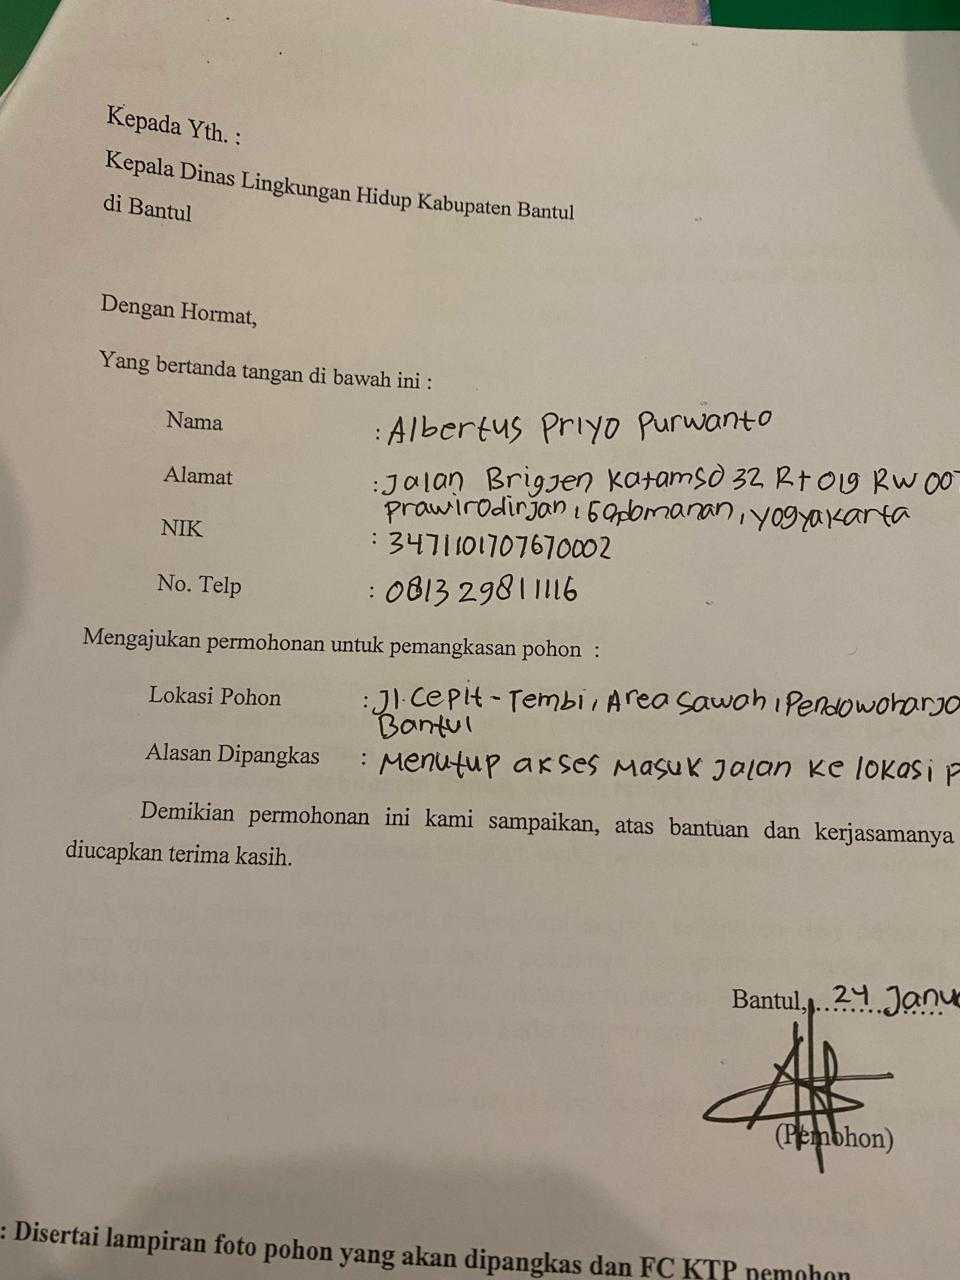 Kepada Yth. :
Kepala Dinas Lingkungan Hidup Kabupaten Bantul
di Bantul
Dengan Hormat,
Yang bertanda tangan di bawah ini :
Nama : Albertus Priyo Purwanto
Alamat : Jalan Brigjen Katamso 32 Rt 019 RW 007
Prawirodirjan, Gondomanan, Yogyakarta
NIK : 3471101707670002
No. Telp : 0813 29811116
Mengajukan permohonan untuk pemangkasan pohon :
Lokasi Pohon : Jl. Cepit - Tembi, Area Sawah, Pendowoharjo
Bantul
Alasan Dipangkas : Menutup akses masuk jalan ke lokasi P
Demikian permohonan ini kami sampaikan, atas bantuan dan kerjasamanya
diucapkan terima kasih.
Bantul, 24 Janu
(Pemohon)
: Disertai lampiran foto pohon yang akan dipangkas dan FC KTP pemohon